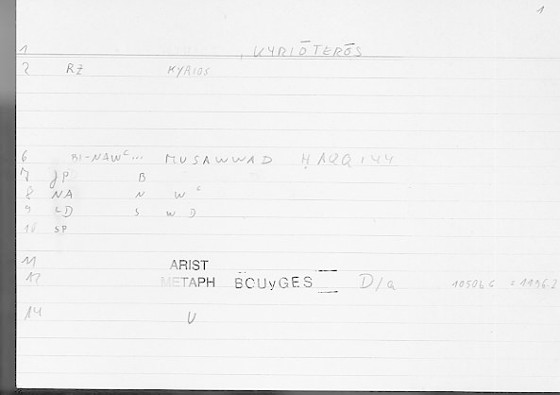 1
1 KYRIŌTERŌS
2 RZ KYRIOS
6 BI-NAWᶜ... MUSAWWAD ḤAQQIYY
7 JP B
8 NA N W ᶜ
9 ᶜD S W D
10 SP
11 ARIST
12 METAPH BOUyGES D/a 1050b6 = 1196.2
14 U